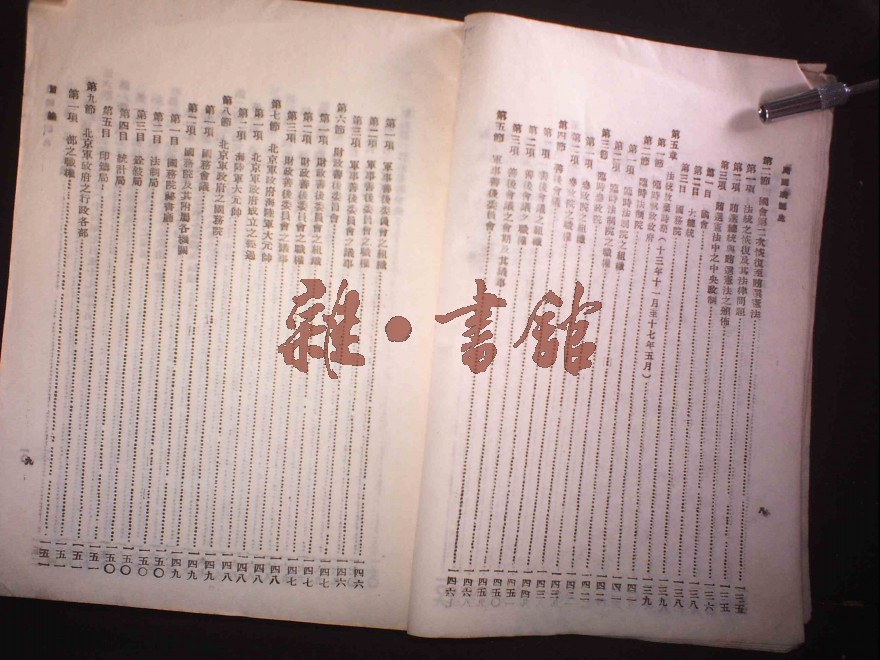 第二節 國會第二次恢復至賄選憲法 一三五
第一項 法統之恢復及其法律問題 一三五
第二項 賄選總統與賄選憲法之頒佈 一三五
第三項 賄選憲法中之中央政制 一三六
第一目 議會
第二目 大總統 一三八
第三目 國務院 一三八
第五章 法統放棄時期(十三年十一月至十七年五月) 一三九
第一節 臨時執政政府 一三九
第二節 臨時法制院
第一項 臨時法制院之組織
第二項 臨時法制院之職權
第三節 臨時參政院
第一項 參政院之組織
第二項 參政院之職權
第四節 善後會議
第一項 善後會議之組織
第二項 善後會議之職權
第三項 善後會議之會期及其議事
第五節 軍事善後委員會 一四六
八
第一項 軍事善後委員會之組織 一四六
第二項 軍事善後委員會之職權 一四六
第三項 軍事善後委員會之議事
第六節 財政善後委員會
第一項 財政善後委員會之組織 一四七
第二項 財政善後委員會之職權 一四七
第三項 財政善後委員會之議事 一四七
第七節 北京軍政府海陸軍大元帥 一四八
第一項 北京軍政府成立之經過 一四八
第二項 海陸軍大元帥 一四八
第八節 北京軍政府之國務院 一四八
第一項 國務會議 一四九
第二項 國務院及其附屬各機關 一四九
第一目 國務院秘書廳 一四九
第二目 法制局 一五〇
第三目 銓敘局 一五〇
第四目 統計局 一五〇
第五目 印鑄局 一五〇
第九節 北京軍政府之行政各部 一五一
第一項 部之職權 一五一
九
雜·書館